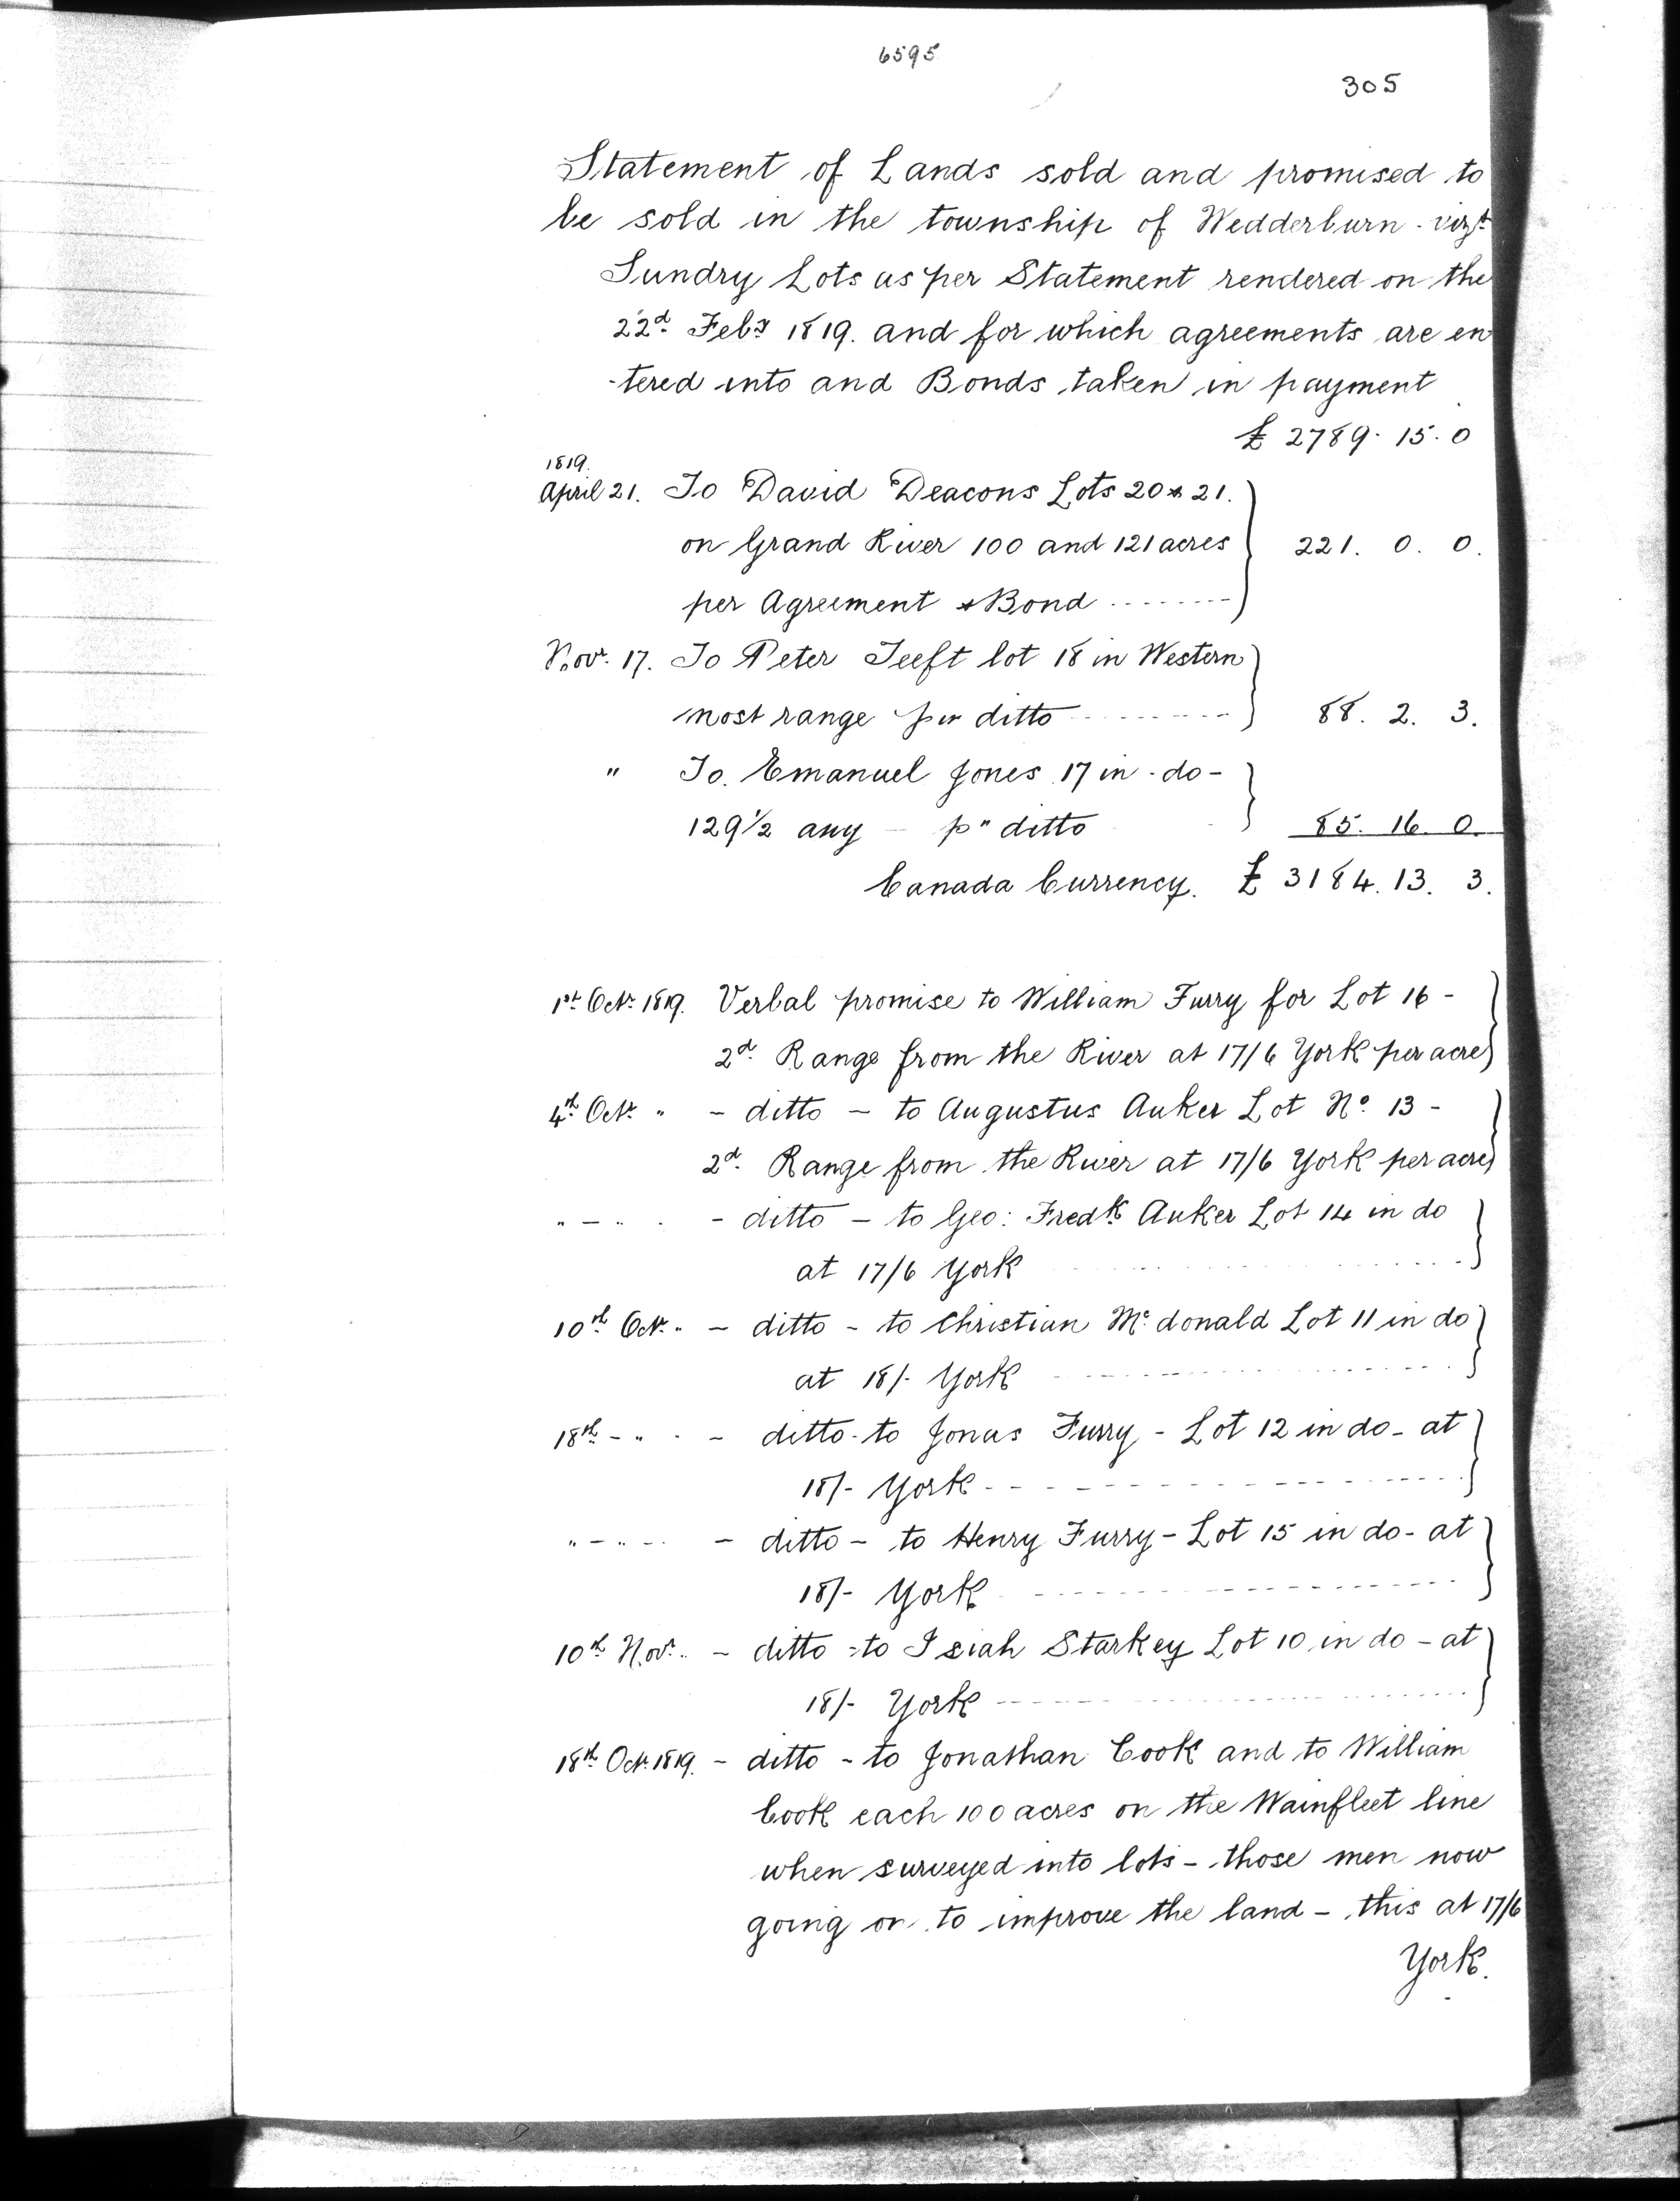 6595
305
Statement of Lands sold and promised to
be sold in the township of Wedderburn - vizt
Sundry Lots as per Statement rendered on the
22d Feby 1819. and for which agreements are en
-tered into and Bonds taken in payment
£ 2789. 15. 0
1819.
April 21. To David Deacons Lots 20 & 21.
on Grand River 100 and 121 acres 221. 0. 0.
per Agreement & Bond
Nov. 17. To Peter Teeft lot 18 in Western
most range per ditto 88. 2. 3.
" To. Emanuel Jones 17 in - do -
129½ any - p" ditto 85. 16. 0.
Canada Currency. £ 3184. 13. 3.
1st Octr 1819. Verbal promise to William Furry for Lot 16 -
2d Range from the River at 17/6 York per acre
4th Octr " - ditto - to Augustus Auker Lot No 13 -
2d Range from the River at 17/6 York per acre
" - " - ditto - to Geo: Fredk Auker Lot 14 in do
at 17/6 York
10th Octr " - ditto - to Christian Mc donald Lot 11 in do
at 18/- York
18th - " - ditto - to Jonas Furry - Lot 12 in do - at
18/- York
" - " - ditto - to Henry Furry - Lot 15 in do - at
18/- York
10th Nov. " - ditto - to Isiah Starkey Lot 10 in do - at
18/- York
18th Oct. 1819. - ditto - to Jonathan Cook and to William
Cook each 100 acres on the Wainfleet line
when surveyed into lots - those men now
going on to improve the land - this at 17/6
York.